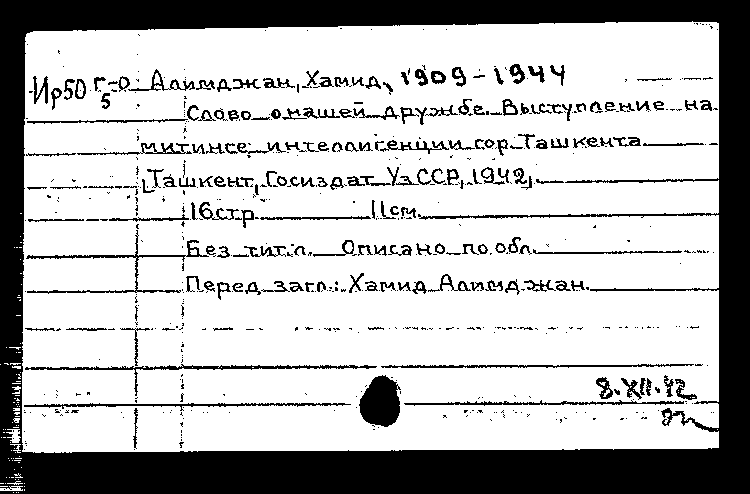 Ир50 Г-о Алимджан, Хамид, 1909-1944
5
Слово о нашей дружбе. Выступление на
митинге интеллигенции гор. Ташкента.
[Ташкент, Госиздат УзССР, 1942].
16 стр. 11 см.
Без тит. л. Описано по обл.
Перед загл.: Хамид Алимджан.
8.XII.42